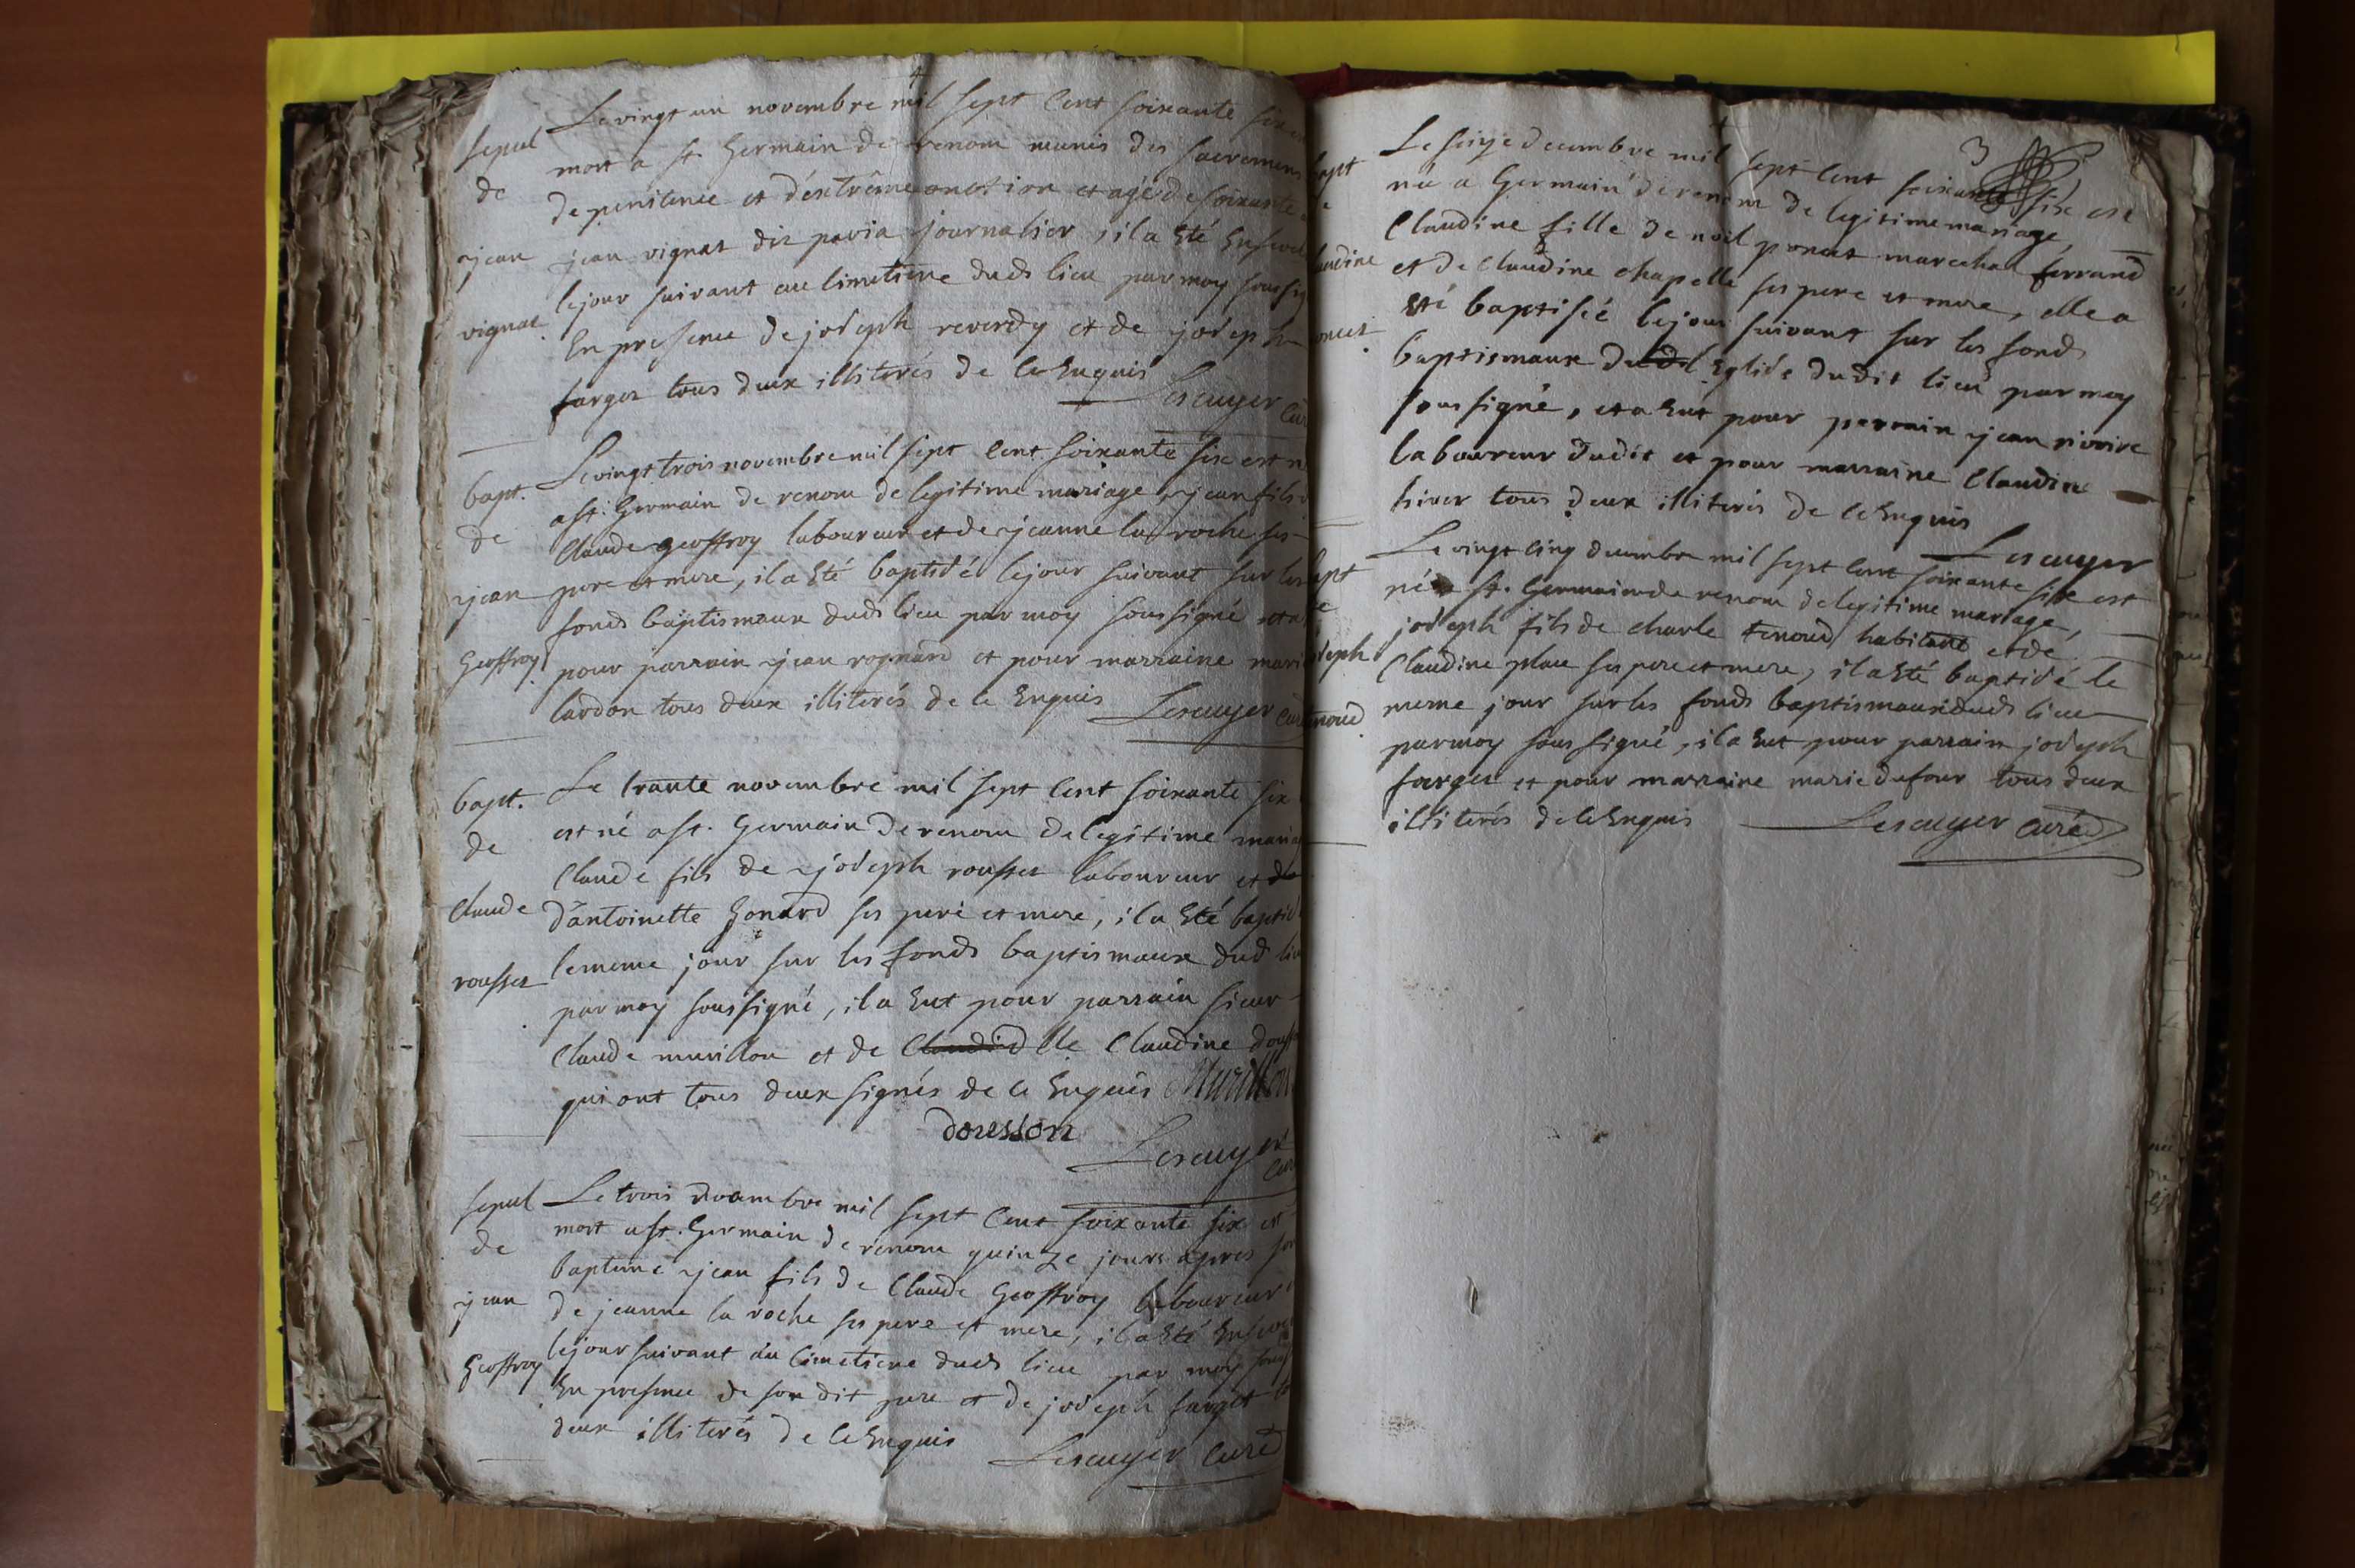 Le vingt un novembre mil sept cent soixante six
sepul
mort a st. Germain de renom munis des sacremens
de
de penitence et d'extrême onction et agé de soixante
jean
jean vignat dit journalier, il a Eté
le jour suivant au cimetiere dud lieu par moy
vignat
En presence de joseph reverdy et de joseph
farges tous deux illiterés de ce Enquis
Lescuyer
bapt.
Le vingt trois novembre mil sept cent soixante six est
a st. Germain de renom de legitime mariage jean fils
de
Claude geoffroy laboureur et de jeanne la roche ses
jean
pere et mere, il a Eté baptisé le jour suivant sur les
fonds baptismaux dud lieu par moy soussigné
Geoffroy
pour parrain jean rognard et pour marraine
lardon tous deux illiterés de ce Enquis
Lescuyer
bapt.
Le trante novembre mil sept cent soixante six
de
est né a st. Germain de renom de legitime
Claude fils de joseph rousset laboureur et
claude
d'antoinette gonard ses pere et mere, il a Eté
rousset
le meme jour sur les fonds baptismaux dud
par moy soussigné, il a Eut pour parrain sieur
Claude murillon et de Claudine
qui ont tous deux signés de ce Enquis Murillon
douesson
Lescuyer
sepul
Le trois decembre mil sept cent soixante six est
de
mort a st. Germain de renom quinze jours apres
bapteme jean fils de Claude Geoffroy laboureur
jean
de jeanne la roche ses pere et mere, il a Eté
le jour suivant au cimetiere dud lieu par moy
Geoffroy
En presence de son dit pere et de joseph farget
deux illiterés de ce Enquis
Lescuyer curé
3
Le seize decembre mil sept cent soixante six est
née a Germain de renom de legitime mariage,
Claudine fille de noil poncet marechal ferrand
et de Claudine chapelle ses pere et mere, elle a
Eté baptisée le jour suivant sur les fonds
baptismaux Eglise dudit lieu par moy
soussigné, et a Eut pour parrain jean rivoire
laboureur dudit et pour marraine Claudine
hiver tous deux illiterés de ce Enquis
Lescuyer
Le vingt cinq decembre mil sept cent soixante six est
né a st. Germain de renom de legitime mariage,
joseph fils de charle tenoud habitant et de
Claudine place ses pere et mere, il a Eté baptisé le
meme jour sur les fonds baptismaux dud lieu
par moy soussigné, il a Eut pour parrain joseph
farges et pour marraine marie dufour tous deux
illiterés de ce Enquis
Lescuyer curé